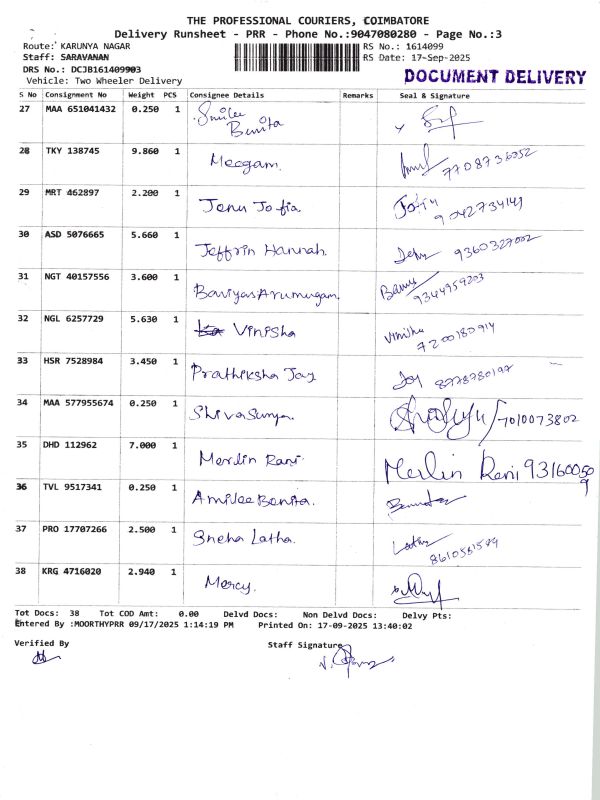 THE PROFESSIONAL COURIERS, COIMBATORE
Delivery Runsheet - PRR - Phone No.:9047080280 - Page No.:3
Route: KARUNYA NAGAR RS No.: 1614099
Staff: SARAVANAN RS Date: 17-Sep-2025
DRS No.: DCJB161409903
Vehicle: Two Wheeler Delivery DOCUMENT DELIVERY
S No Consignment No Weight PCS Consignee Details Remarks Seal & Signature
27 MAA 651041432 0.250 1 Smilee
Benita
28 TKY 138745 9.860 1 Meegam. 7708736052
29 MRT 462897 2.200 1 Jenu Jofia 9042734149
30 ASD 5076665 5.660 1 Jeffrin Hannah. 9360327002
31 NGT 40157556 3.600 1 BaviyasArumugam. 9344959203
32 NGL 6257729 5.630 1 Vinisha Vinisha
7200180914
33 HSR 7528984 3.450 1 Prathiksha Jay Joy 8778780197
34 MAA 577955674 0.250 1 ShivaSurya. 7010073802
35 DHD 112962 7.000 1 Merlin Rani Merlin Rani 931600509
36 TVL 9517341 0.250 1 Amilee Benita.
37 PRO 17707266 2.500 1 Sneha Latha. Latha
38 KRG 4716020 2.940 1 Mercy.
Tot Docs: 38 Tot COD Amt: 0.00 Delvd Docs: Non Delvd Docs: Delvy Pts:
Entered By :MOORTHYPRR 09/17/2025 1:14:19 PM Printed On: 17-09-2025 13:40:02
Verified By Staff Signature